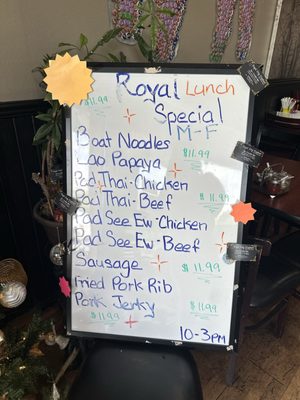 Royal Lunch
Special
M-F
$11.99
Boat Noodles
$11.99
Lao Papaya
Pad Thai-Chicken
Pad Thai-Beef
$11.99
Pad See Ew-Chicken
Pad See Ew-Beef
Sausage
$11.99
Fried Pork Rib
Pork Jerky
$11.99
$11.99
10-3pm